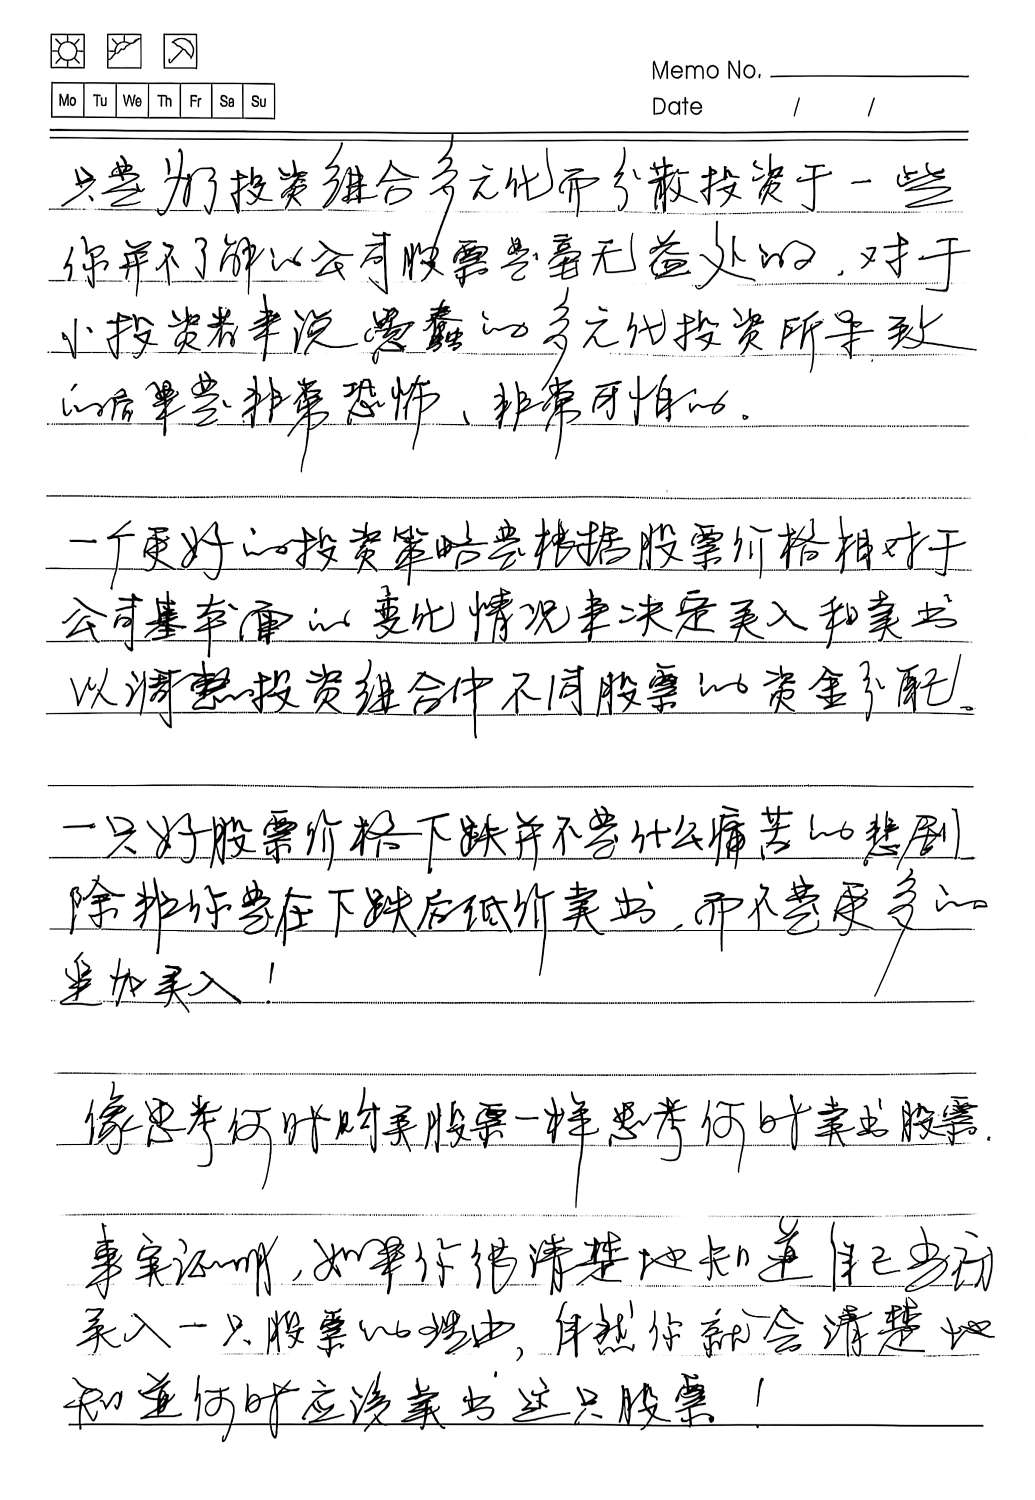 Memo No.
Mo Tu We Th Fr Sa Su
Date / /
只是为了投资组合多元化而分散投资于一些
你并不了解的公司股票是毫无益处的，对于
小投资者来说愚蠢的多元化投资所导致
的后果是非常恐怖、非常可怕的。
一个更好的投资策略是根据股票价格相对于
公司基本面的变化情况来决定买入和卖出
以调整投资组合中不同股票的资金分配。
一只好股票价格下跌并不是什么痛苦的悲剧
除非你是在下跌后低价卖出，而不是更多的
追加买入！
像思考何时购买股票一样思考何时卖出股票.
事实证明，如果你很清楚地知道自己当初
买入一只股票的理由，自然你就会清楚地
知道何时应该卖出这只股票！